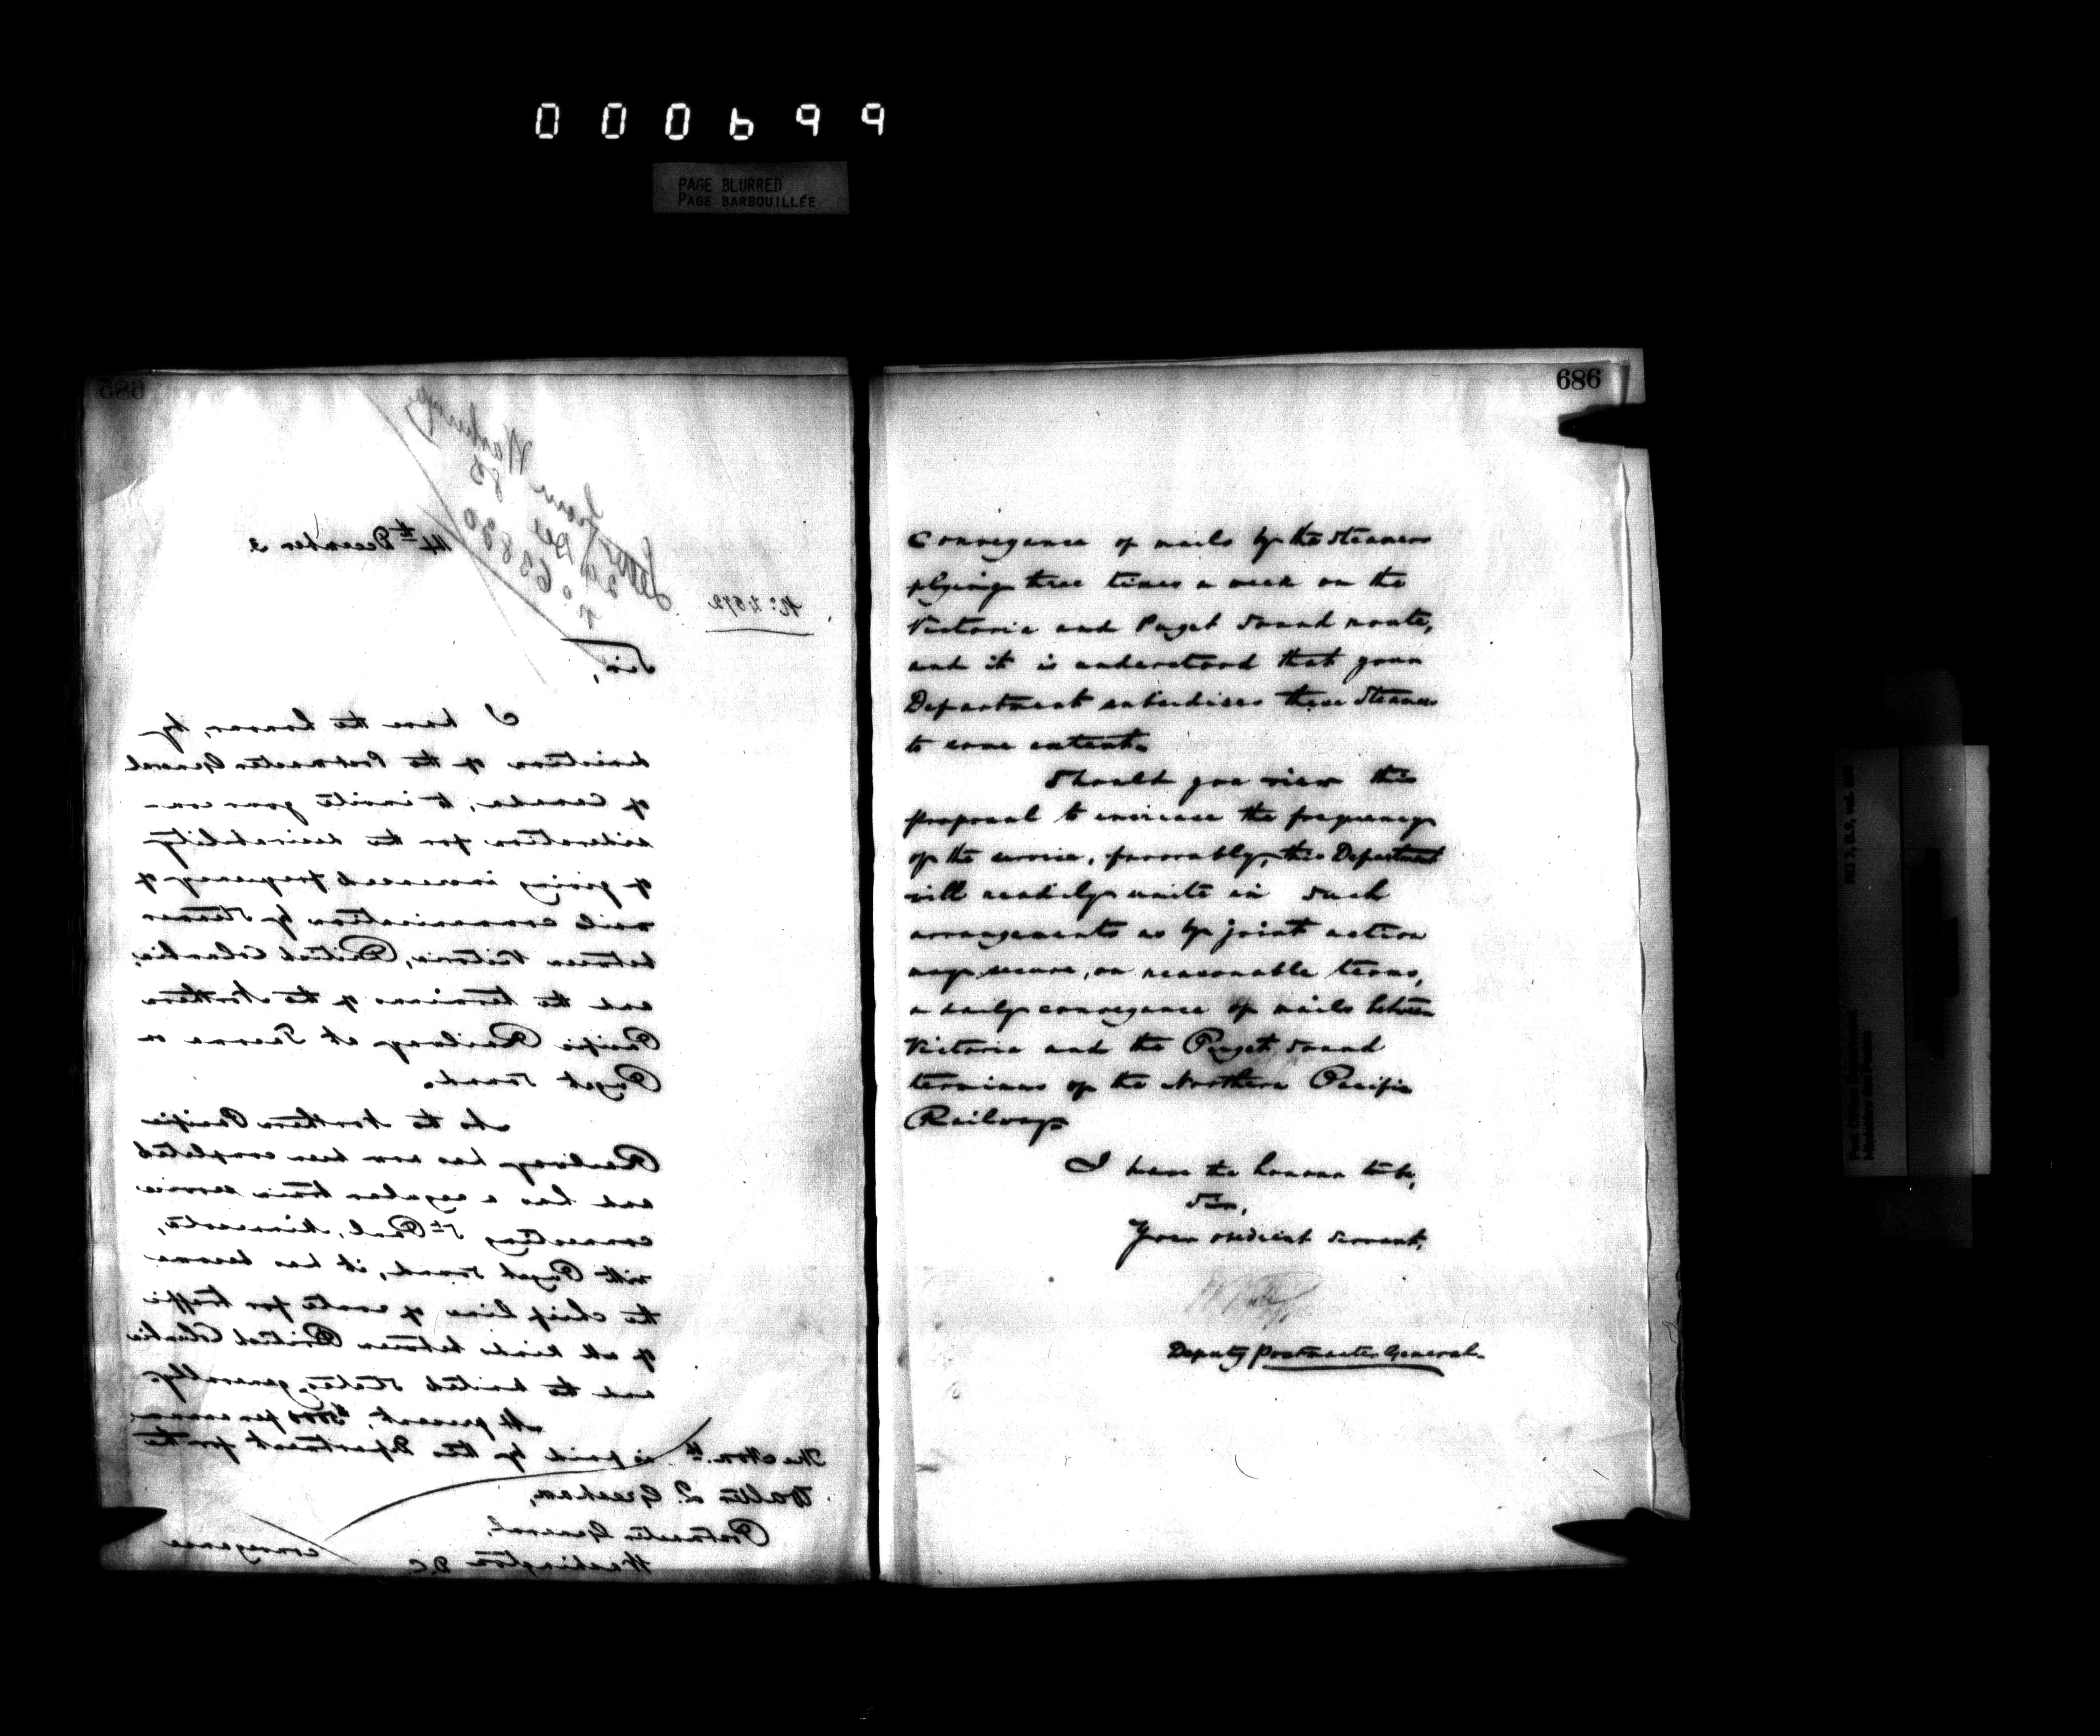 000699
PAGE BLURRED
PAGE BARBOUILLÉE
685
Letter from Washington
24 Dec 83
No 65820
14th December 3
No 7.572
Sir,
I have the honour, by
direction of the Postmaster General
of Canada, to invite your con-
sideration for the desirability
of giving increased frequency of
mail communication by steamer
between Victoria, British Columbia,
and the terminus of the Northern
Pacific Railway at Tacoma on
Puget Sound.
As the Northern Pacific
Railway has now been completed
and has a regular train service
connecting St Paul, Minnesota,
with Puget Sound, it has become
the chief line of route for traffic
of all kinds between British Columbia
and the United States generally.
At present, $5000 per annum
is paid by this Department for the
The Honble
Walter Q. Gresham,
Postmaster General,
Washington D.C.
conveyance
686
Conveyance of mails by the Steamers
plying three times a week on the
Victoria and Puget Sound route,
and it is understood that your
Department subsidises these Steamers
to some extent.
Should you view this
proposal to increase the frequency
of the service, favorably, this Department
will readily unite in such
arrangements as by joint action
may secure, on reasonable terms,
a daily conveyance of mails between
Victoria and the Puget Sound
terminus of the Northern Pacific
Railway
I have the honour to be,
Sir,
Your obedient Servant,
Deputy Postmaster General.
RG 3, B.9, vol.
Post Office Department
Ministère des Postes